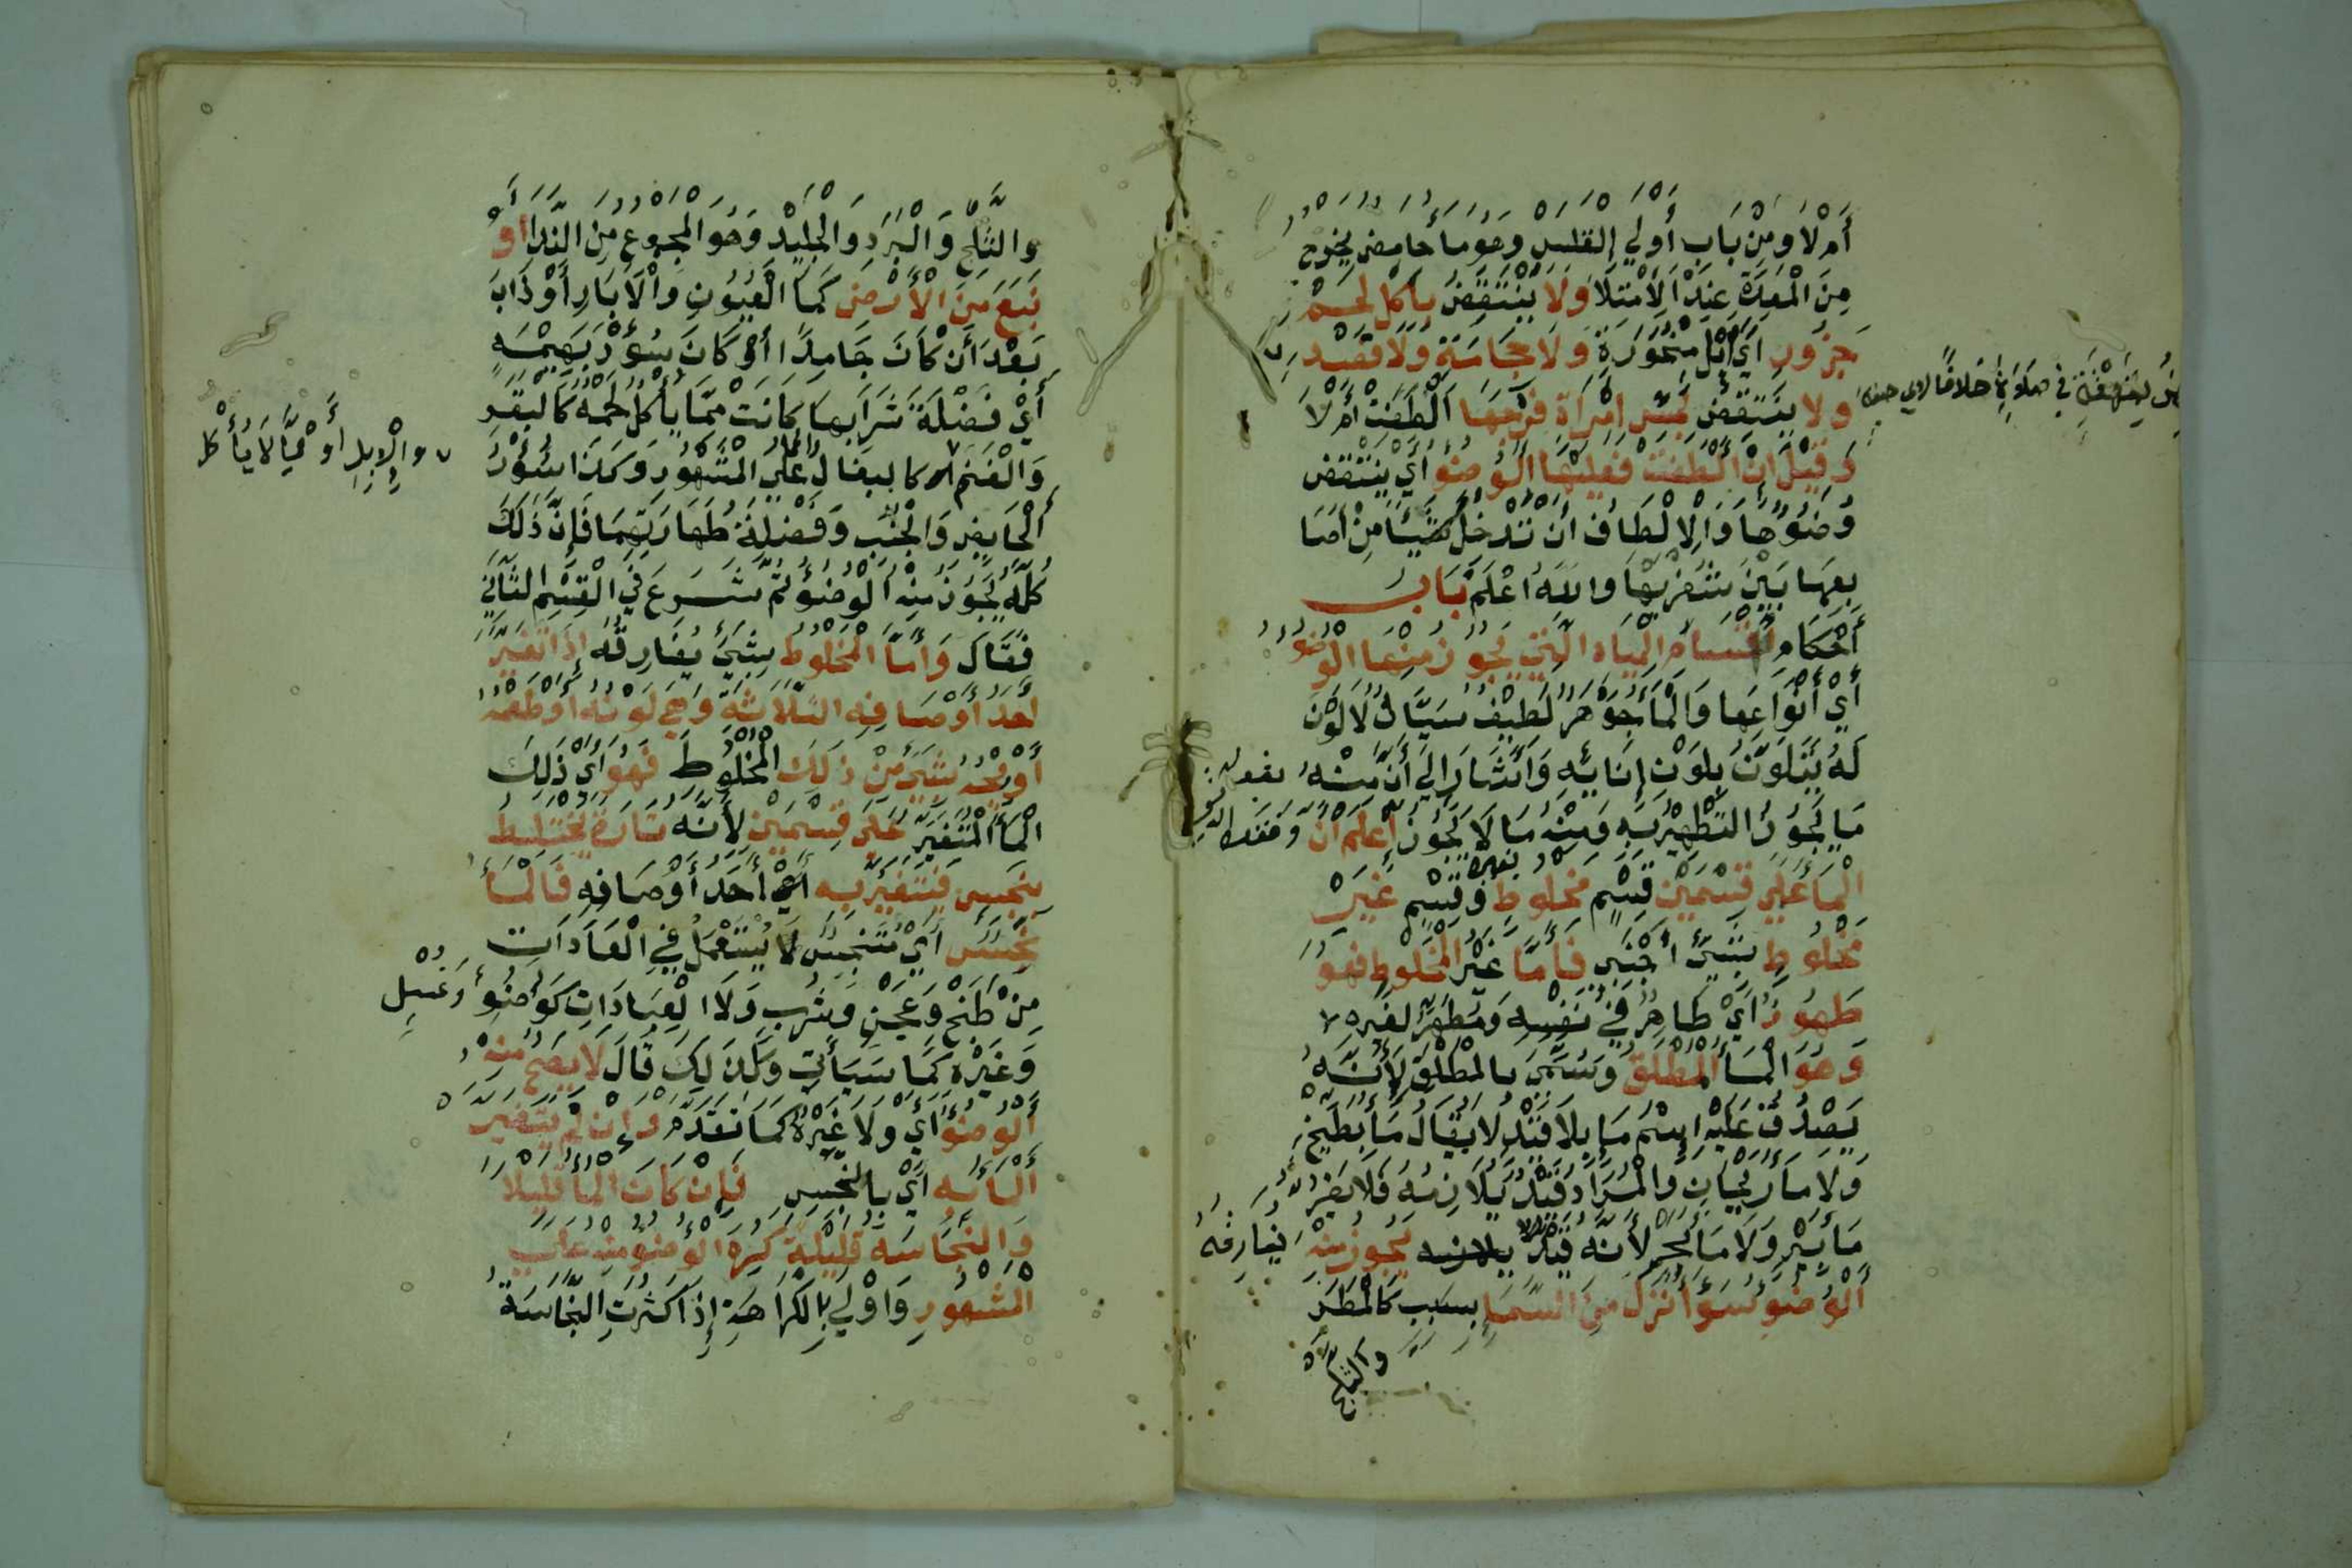 أَمْ لَا وَمِنْ بَابِ أَوْلَي القلس وهو ما حامض يخرج
مِنَ الْمَعِدَةِ عِنْدَ الِامْتِلَا وَلَا يَنْتَقِضُ بِأَكْلِ لَحْمِ
جَزُورٍ أَيْ إِبِلٍ مَنْحُورَةٍ وَلَا حِجَامَةٍ وَلَا فَصْدٍ
ولا قهقهة في صلاة خلافا لابي حنيفة
ولا ينتقض بمس امْرَأَة فرجها أَلْطَفَتْ أَمْ لَا
وَقِيلَ إِنْ أَلْطَفَتْ فَعَلَيْهَا الْوُضُوُ أَيْ يَنْتَقِضُ
وُضُوُهَا وَالْإِلْطَافُ أَنْ تُدْخِلَ شَيْئًا مِنْ أصا
بعها بَيْنَ شفريها والله أعلم بَاب
أَحْكَامِ أقسام المياه التي يجوز منها الوضو
أَيْ أَنْوَاعِهَا وَالْمَاءُ جَوْهَرٌ لَطِيفٌ سَيَّالٌ لَا لَوْنَ
لَهُ يَتَلَوَّنُ بِلَوْنِ إِنَائِهِ وَأَشَارَ إِلَي أَنَّ مِنْهُ بقوله
مَا يَجُوزُ التَّطْهِيرُ بِهِ وَمِنْهُ مَا لَا يَجُوزُ إعلم أَنَّ
الْمَاءَ عَلَي قِسْمَيْنِ قِسْمٍ مخلوط بغيره وَقِسْمٍ غَيْرِ
مَخْلُوطٍ بِشَيْءٍ أجنبي فَأَمَّا غَيْرُ الْمَخْلُوطِ فهو
طَهُورٌ أَيْ طَاهِرٌ فِي نَفْسِهِ وَمُطَهِّرٌ لغيره
وَهُوَ الْمَاءُ الْمُطْلَقُ وَسُمِّيَ بالمطلق لِأَنَّهُ
يَصْدُقُ عَلَيْهِ إِسْمُ مَاءٍ بِلَا قَيْدٍ لَا يُقَالُ مَاءُ بَطِّيخٍ
وَلَا مَاءُ رَيْحَانٍ وَالْمُرَادُ قَيْدٌ يُلَازِمُهُ فَلَا يَضُرُّ
مَاءُ بِيرٍ وَلَا مَاءُ بَحْرٍ لِأَنَّهُ قَيْدٌ يفارقه يَجُوزُ مِنْهُ
الْوُضُو سَوَا نَزَلَ مِنَ السَّمَا بسبب كَالْمَطَرِ
والثلج
والثَّلْجِ وَالْبَرَدِ وَالْجَلِيدِ وَهُوَ الْمَجْمُوعُ مِنَ النَّدَا أَوْ
نَبَعَ مِنَ الْأَرْضِ كَمَا الْعُيُونِ وَالْآبَارِ أَوْ ذَابَ
بَعْدَ أَن كَانَ جَامِدًا أَوْ كَانَ سُؤْرَ بَهِيمَةٍ
أَيْ فَضْلَةَ شَرَابِهَا كَانَتْ مِمَّا يُأْكَلُ لَحْمُهُ كَالْبَقَرِ
وَالْغَنَم كالبغال والحمار عَلَي الْمَشْهُورِ وَكَذَا سُؤْرُ
والإبل أَوْ مِمَّا لَا يُأْكل
الْحَايِضِ وَالْجُنُبِ وَفَضْلَةُ طَهَارَتِهِمَا فَإِنَّ ذَلِكَ
كُلَّهُ يَجُوزُ مِنْهُ الْوُضُو ثُمَّ شَرَعَ فِي الْقِسْمِ الثَّانِي
فَقَالَ وَأَمَّا الْمَخْلُوطُ بِشَيْءٍ يفارقه إذا تغير
أحد أَوْصَافِهِ الثَّلَاثَةِ وَهِيَ لَوْنُهُ أَوْ طَعْمُهُ
أَوْ رِيحُهُ بِشَيْءٍ مِنْ ذَلِكَ الْمَخْلُوطِ فَهُوَ أَيْ ذَلِكَ
الْمَاءُ الْمُتَغَيِّرُ عَلَى قِسْمَيْنِ لِأَنَّهُ تَارَةً يختلط
بِنَجَسٍ فَيَتَغَيَّرُ بِهِ أَيْ أَحَدُ أَوْصَافِهِ فَالْمَاءُ
نَجَسٌ أَيْ مُتَنَجِّسٌ لَا يُسْتَعْمَلُ فِي الْعَادَاتِ
مِنْ طَبْخٍ وَعَجْنٍ وَشُرْبٍ وَلَا الْعِبَادَاتِ كَوُضُو وَغُسْلٍ
وَغَيْرِهِ كَمَا سَيَأْتِي وَكَذَلِكَ قَالَ لَا يَصِحُّ مِنْهُ
أَلْوُضُو أَيْ وَلَا غَيْرُهُ كَمَا تَقَدَّمَ وَإِنْ لَمْ يَتَغَيَّرْ
أَلْمَاءُ بِهِ أَيْ بِالنَّجَسِ فَإِنْ كَانَ الْمَاءُ قَلِيلًا
وَالنَّجَاسَةُ قَلِيلَةً كُرِهَ الْوُضُو مِنْهُ عَلَي
الْمَشْهُورِ وَأَوْلَي بِالْكَرَاهَةِ إِذَا كَثُرَتِ النَّجَاسَةُ